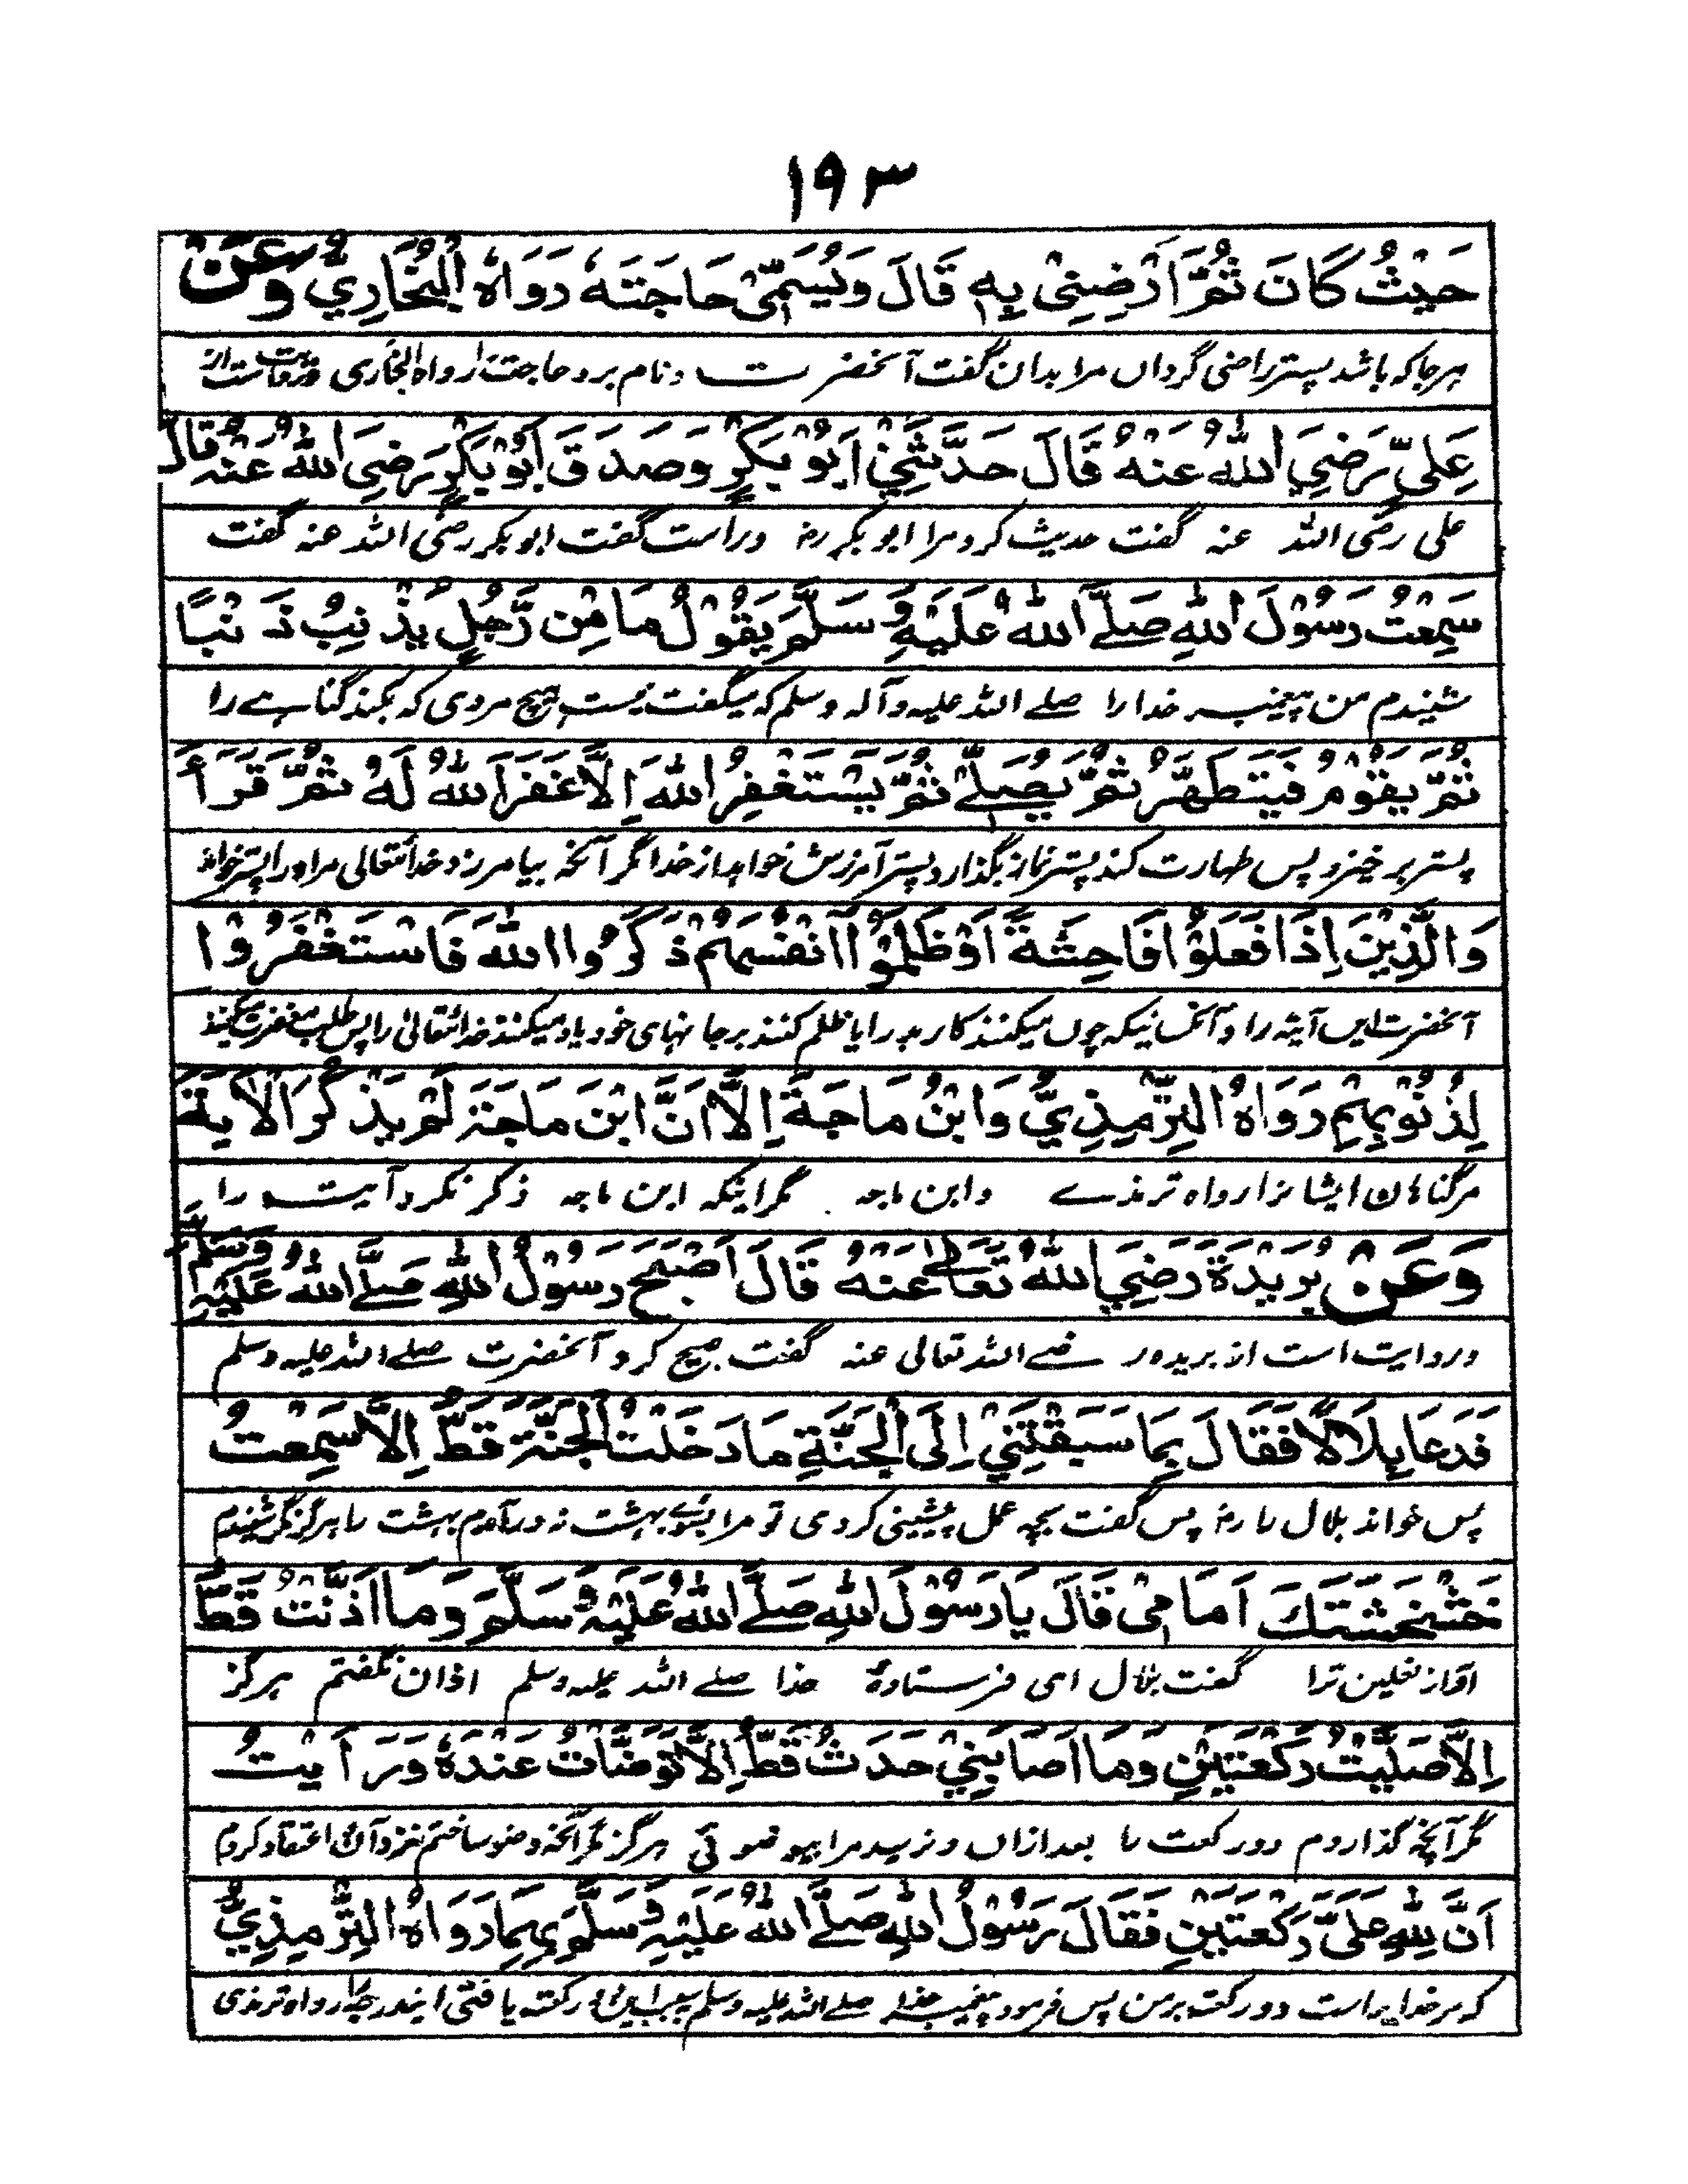 ١٩٣
حَيْثُ كَانَ ثُمَّ اَرْضِنِىْ بِهٖ قَالَ وَيُسَمِّىْ حَاجَتَهٗ رَوَاهُ الْبُخَارِيُّ وَعَنْ
هرجا که باشد پستر راضی گرداں مرا بدان گفت آنحضرت و نام برد حاجت را رواه البخاری و روایت است از
عَلِيٍّ رَضِيَ اللهُ عَنْهُ قَالَ حَدَّثَنِيْ اَبُوْ بَكْرٍ وَصَدَقَ اَبُوْ بَكْرٍ رَضِيَ اللهُ عَنْهُ قَالَ
علی رضی الله عنه گفت حدیث کرد مرا ابو بکر رضه و راست گفت ابو بکر رضی الله عنه گفت
سَمِعْتُ رَسُوْلَ اللهِ صَلَّے اللهُ عَلَيْهِ وَسَلَّمَ يَقُوْلُ مَا مِنْ رَّجُلٍ يُذْنِبُ ذَنْبًا
شنیدم من پیغمبر خدا را صلے الله علیه وآله وسلم که میگفت نیست هیچ مردی که بکند گناہے را
ثُمَّ يَقُوْمُ فَيَتَطَهَّرُ ثُمَّ يُصَلِّےْ ثُمَّ يَسْتَغْفِرُ اللهَ اِلَّا غَفَرَ اللهُ لَهٗ ثُمَّ قَرَأَ
پستر بر خیزد پس طهارت کند پستر نماز بگذارد پستر آمرزش خواهد از خدا مگر آنکه بیامرزد خدا تعالی مر او را پستر خواند
وَالَّذِيْنَ اِذَا فَعَلُوْا فَاحِشَةً اَوْ ظَلَمُوْا اَنْفُسَهُمْ ذَكَرُوا اللهَ فَاسْتَغْفَرُوْا
آنحضرت ایں آیة را و آنکسانیکه چوں میکنند کار بد را یا ظلم کنند بر جانهای خود یاد میکنند خدا تعالی را پس طلب مغفرت میکنند
لِذُنُوْبِهِمْ رَوَاهُ التِّرْمِذِيُّ وَابْنُ مَاجَةَ اِلَّا اَنَّ ابْنَ مَاجَةَ لَمْ يَذْكُرِ الْاٰيَةَ
مر گناهان ایشانرا رواه ترمذے وابن ماجه مگر اینکه ابن ماجه ذکر نکرد آیت را
وَعَنْ بُرَيْدَةَ رَضِيَ اللهُ تَعَالٰے عَنْهُ قَالَ اَصْبَحَ رَسُوْلُ اللهِ صَلَّے اللهُ عَلَيْهِ وَسَلَّمَ
وروایت است از بریده رضے الله تعالی عنه گفت صبح کرد آنحضرت صلے الله علیه وسلم
فَدَعَا بِلَالًا فَقَالَ بِمَا سَبَقْتَنِيْ اِلَى الْجَنَّةِ مَا دَخَلْتُ الْجَنَّةَ قَطُّ اِلَّا سَمِعْتُ
پس خواند بلال را رضه پس گفت بچه عمل پیشینی کردی تو مرا بسوئے بهشت نه درآمدم بهشت را هرگز مگر شنیدم
خَشْخَشَتَكَ اَمَامِىْ قَالَ يَا رَسُوْلَ اللهِ صَلَّے اللهُ عَلَيْهِ وَسَلَّمَ وَمَا اَذَّنْتُ قَطُّ
آواز نعلین ترا گفت بلال ای فرستادهٔ خدا صلے الله علیه وسلم اذان نگفتم هرگز
اِلَّا صَلَّيْتُ رَكْعَتَيْنِ وَمَا اَصَابَنِيْ حَدَثٌ قَطُّ اِلَّا تَوَضَّاْتُ عِنْدَهٗ وَرَاَيْتُ
مگر آنکه گذاردم دو رکعت را بعد ازاں و نرسید مرا بیوضوئی هرگز مگر آنکه وضو ساختم نزد آن و اعتقاد کردم
اَنَّ لِلّٰهِ عَلَيَّ رَكْعَتَيْنِ فَقَالَ رَسُوْلُ اللهِ صَلَّے اللهُ عَلَيْهِ وَسَلَّمَ بِهِمَا رَوَاهُ التِّرْمِذِيُّ
که مر خدا یراست دو رکعت بر من پس فرمود پیغمبر خدا صلے الله علیه وسلم بسبب این دو رکعت یافتی این درجه رواه ترمذی